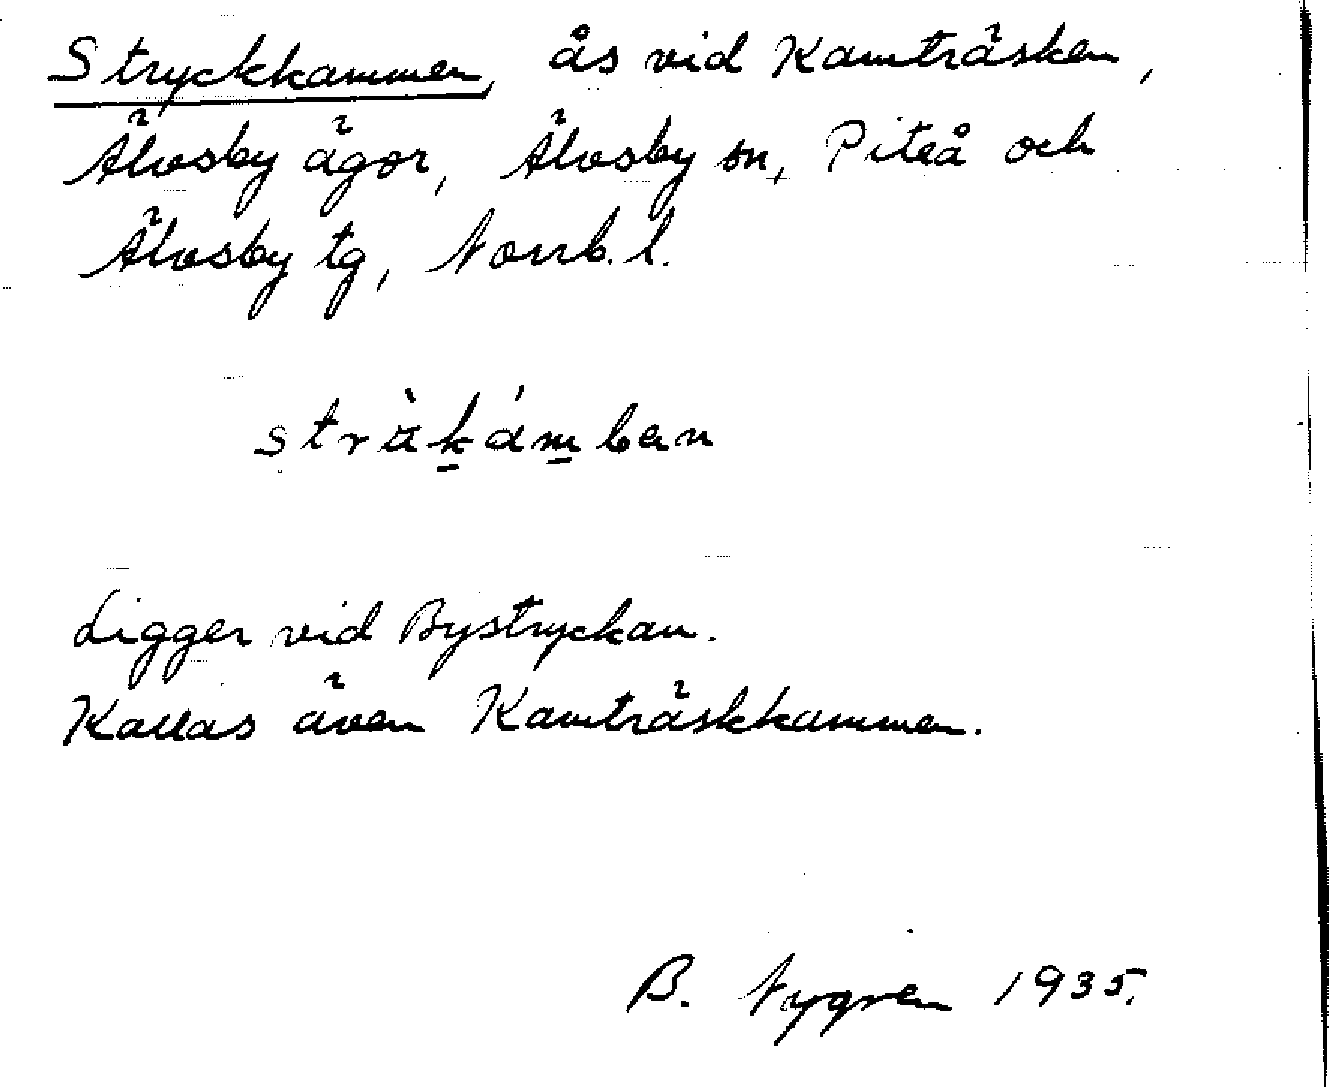 Stryckkammen, ås vid Kamträsken,
Älvsby ägor, Älvsby sn, Piteå och
Älvsby tg, Norrb. l.
strä̀ḵám̱ban
Ligger vid Bystryckan.
Kallas även Kamträskkammen.
B. Nygren 1935.